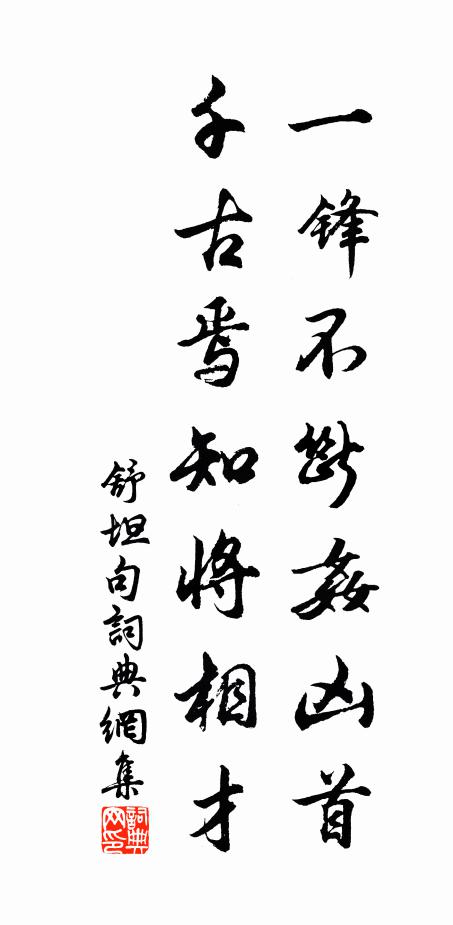 一锋不斷姦凶首
千古焉知將相才
舒坦句詞典網集
詞典网印